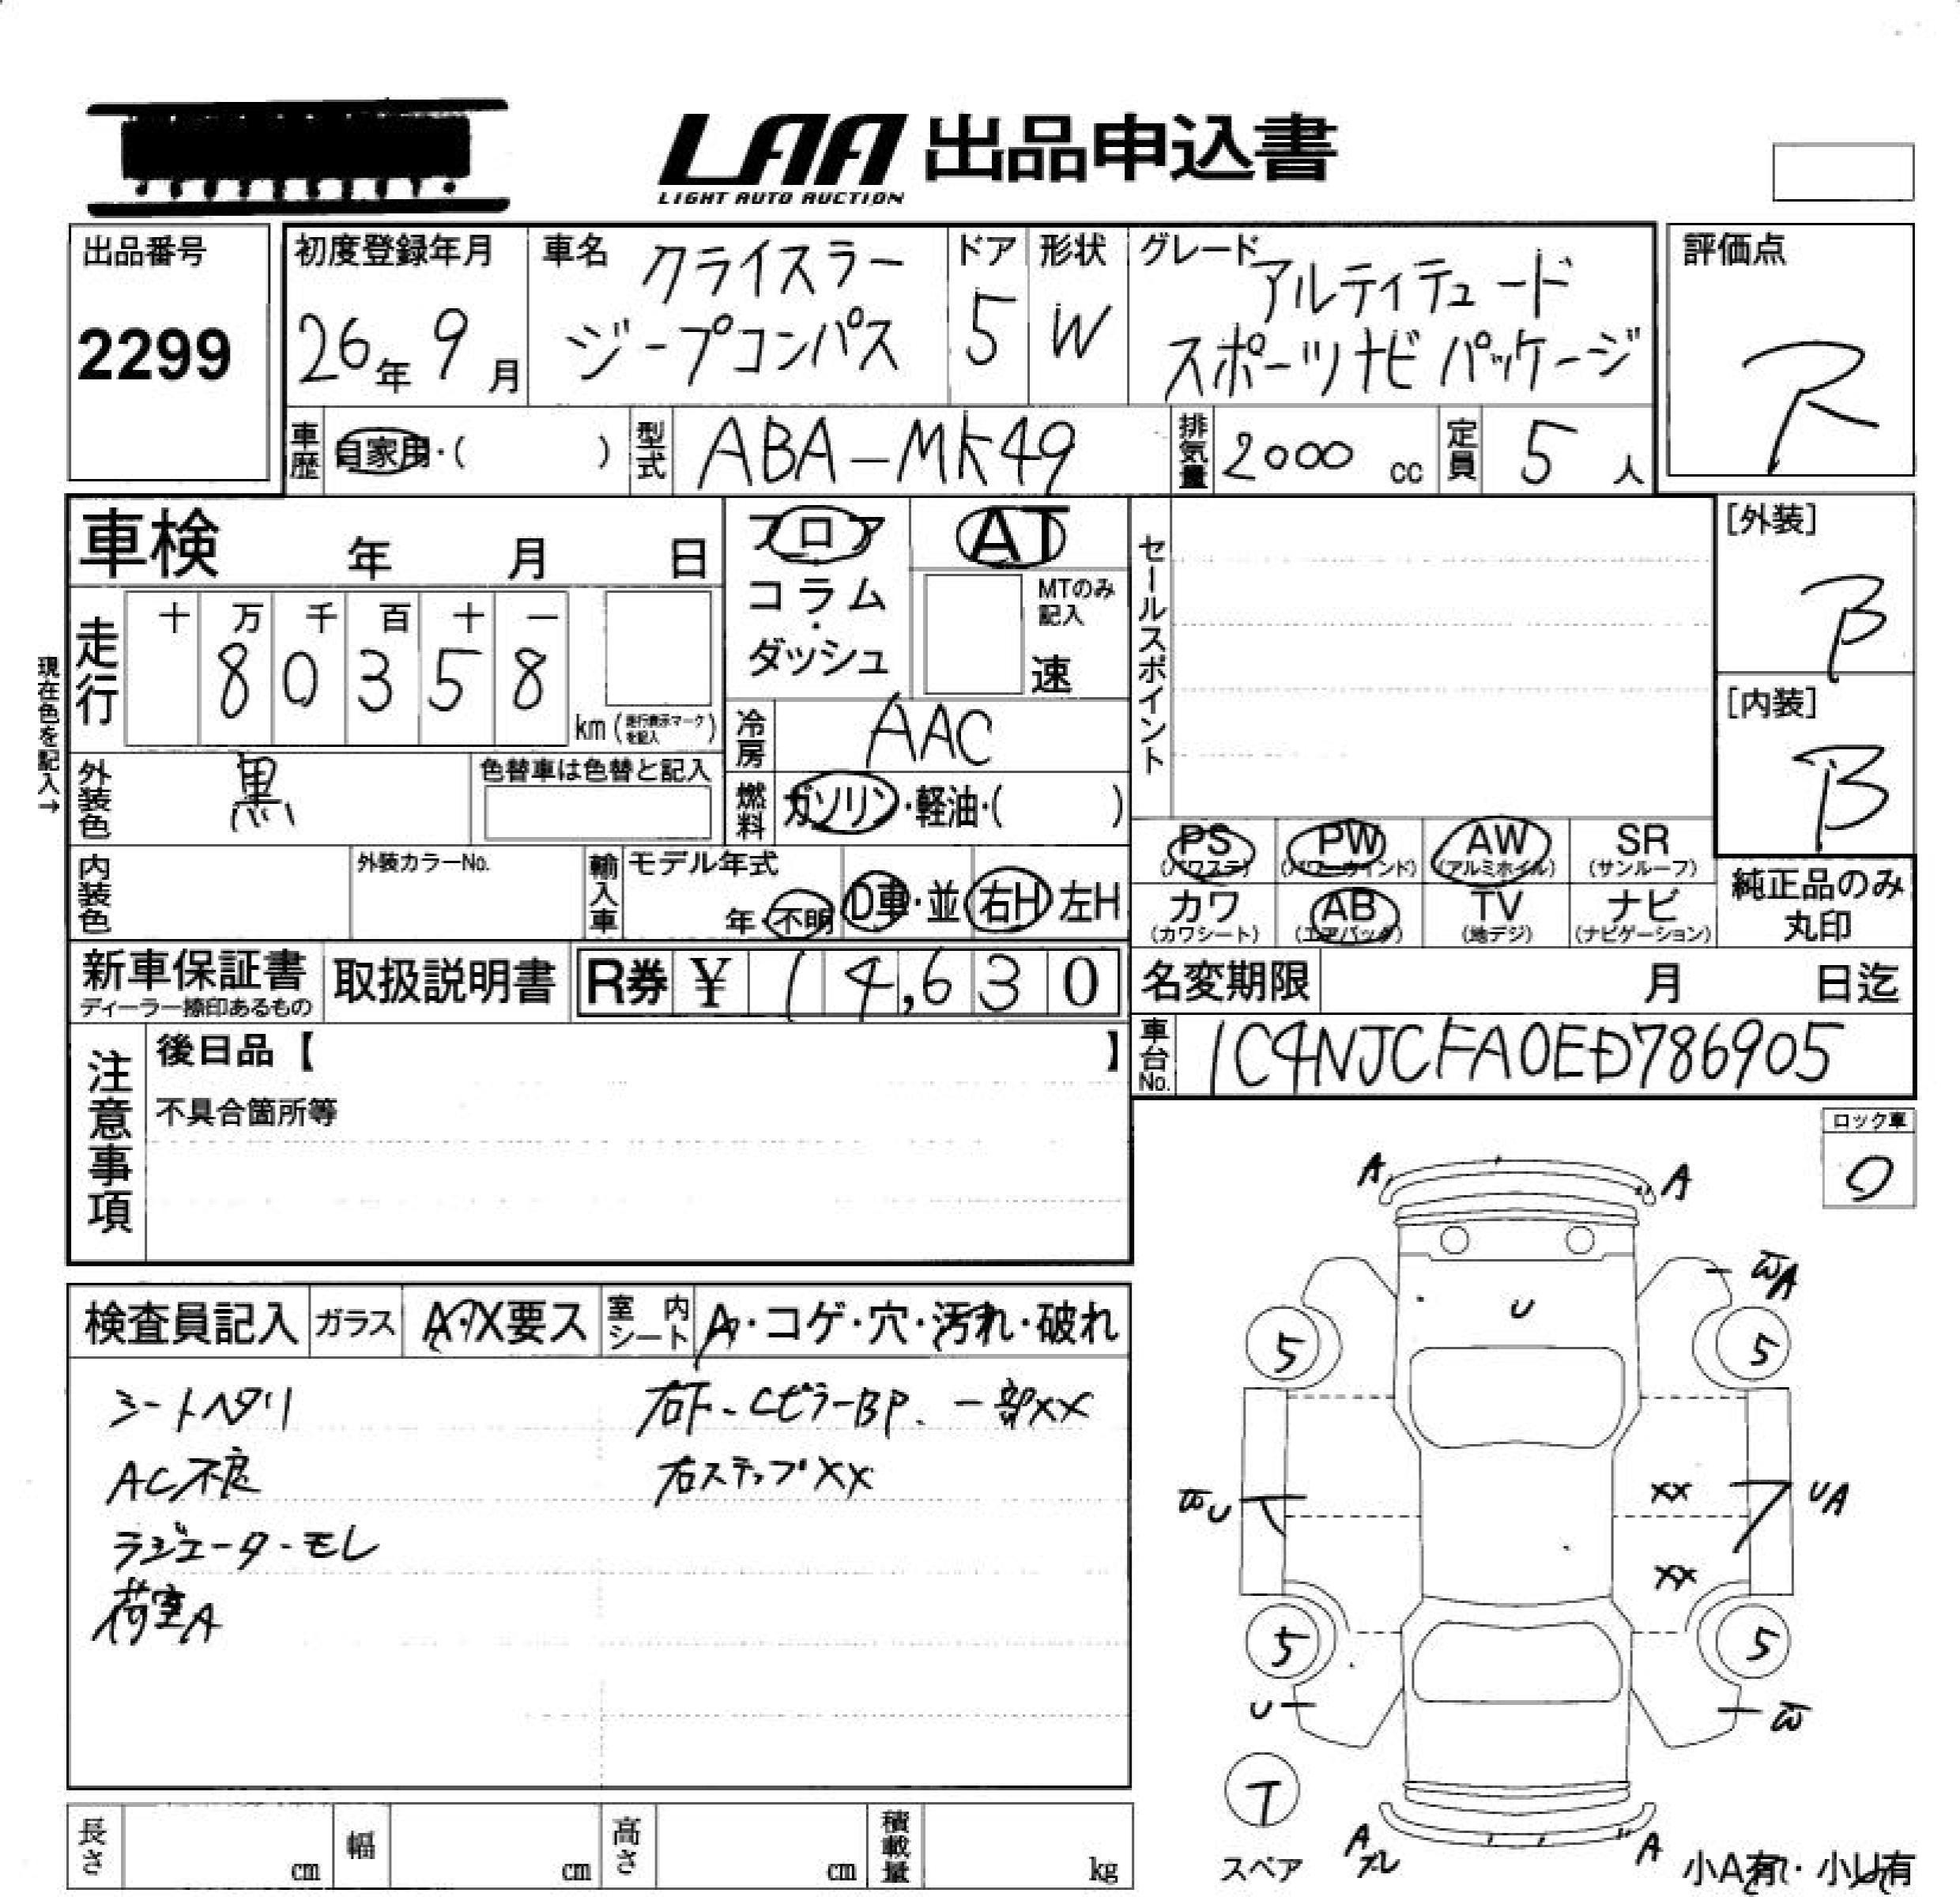 LAA 出品申込書
LIGHT AUTO AUCTION
出品番号
2299
初度登録年月
26年 9月
車名
クライスラー
ジープコンパス
ドア
5
形状
W
グレード
アルティテュード
スポーツナビ パッケージ
評価点
R
車歴
自家用・( )
型式
ABA-MK49
排気量
2000 cc
定員
5 人
車検 年 月 日
フロア
・
コラム
・
ダッシュ
AT
MTのみ
記入
速
セールスポイント
[外装]
B
[内装]
B
現在色を記入→
走行
十 万 千 百 十 一
8 0 3 5 8
km (走行表示マークを記入)
冷房
AAC
外装色
黒
色替車は色替と記入
燃料
ガソリン・軽油・( )
PS
(パワステ)
PW
(パワーウインド)
AW
(アルミホイル)
SR
(サンルーフ)
カワ
(カワシート)
AB
(エアバッグ)
TV
(地デジ)
ナビ
(ナビゲーション)
純正品のみ
丸印
内装色
外装カラーNo.
輸入車
モデル年式
年・不明
D車・並
右H 左H
新車保証書
ディーラー捺印あるもの
取扱説明書
R券 ¥ 14,630
名変期限 月 日迄
車台No.
1C4NJCFA0ED786905
注意事項
後日品【 】
不具合箇所等
ロック車
0
検査員記入
ガラス
A・X要ス
室内シート
A・コゲ・穴・汚れ・破れ
シートヘタリ
AC不良
ラジエーターモレ
荷室A
右F、CピラーBP、一部XX
右ステップXX
A
A
WA
U
5
5
XX
WU
UA
XX
5
5
U
W
T
スペア
A
ズレ
A
小A有・小U有
長さ cm
幅 cm
高さ cm
積載量 kg